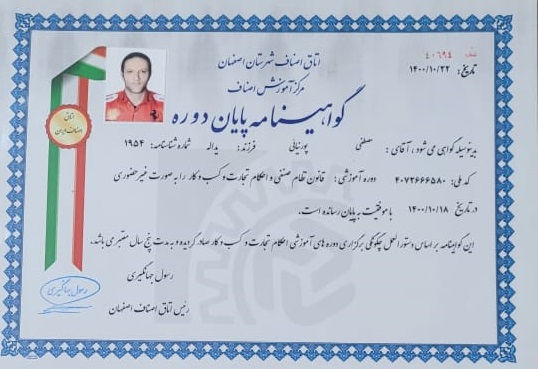 اتاق اصناف شهرستان اصفهان
مرکز آموزش اصناف
۴۰۶۹۴
تاریخ: ۱۴۰۰/۱۰/۲۲
گواهینامه پایان دوره
اتاق اصناف ایران
بدینوسیله گواهی می شود ، آقای : مصطفی پورنیائی فرزند : یداله شماره شناسنامه: ۱۹۵۴
کد ملی: ۴۰۷۲۶۶۶۵۸۰ دوره آموزشی : قانون نظام صنفی و احکام تجارت و کسب و کار را به صورت غیرحضوری
در تاریخ ۱۴۰۰/۱۰/۱۸ با موفقیت به پایان رسانده است.
این گواهینامه بر اساس دستورالعمل چگونگی برگزاری دوره های آموزشی احکام تجارت و کسب و کار صادر گردیده و به مدت پنج سال معتبر می باشد.
رسول جهانگیری
رئیس اتاق اصناف اصفهان
رسول جهانگیری